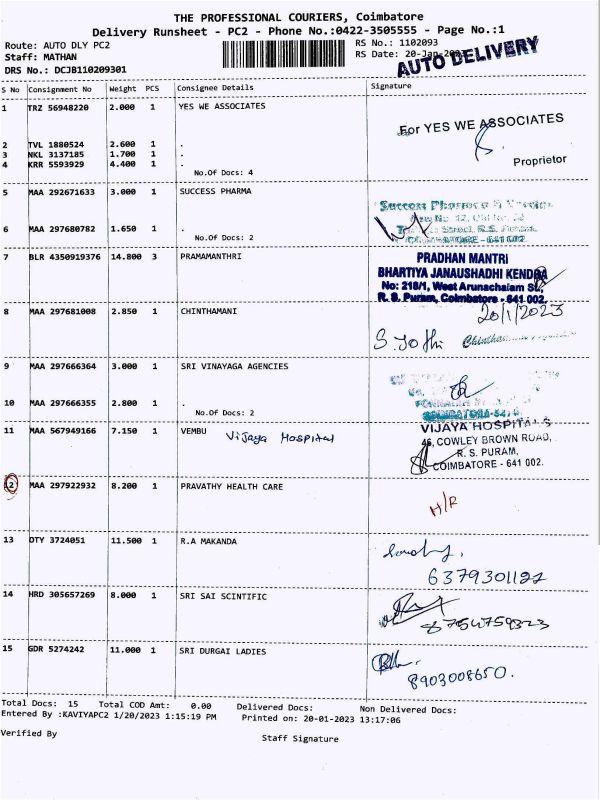 THE PROFESSIONAL COURIERS, Coimbatore
Delivery Runsheet - PC2 - Phone No.:0422-3505555 - Page No.:1
Route: AUTO DLY PC2 RS No.: 1102093
Staff: MATHAN RS Date: 20-Jan-
DRS No.: DCJB110209301
AUTO DELIVERY
S No Consignment No Weight PCS Consignee Details Signature
1 TRZ 56948220 2.000 1 YES WE ASSOCIATES
For YES WE ASSOCIATES
2 TVL 1880524 2.600 1 .
3 NKL 3137185 1.700 1 .
4 KRR 5593929 4.400 1 .
Proprietor
No.Of Docs: 4
5 MAA 292671633 3.000 1 SUCCESS PHARMA
Success
6 MAA 297680782 1.650 1 .
No.Of Docs: 2
7 BLR 4350919376 14.800 3 PRAMAMANTHRI
PRADHAN MANTRI
BHARTIYA JANAUSHADHI KENDRA
No: 218/1, West Arunachalam St.,
R. S. Puram, Coimbatore - 641 002.
8 MAA 297681008 2.850 1 CHINTHAMANI
20/1/2023
S Jothi
9 MAA 297666364 3.000 1 SRI VINAYAGA AGENCIES
10 MAA 297666355 2.800 1 .
No.Of Docs: 2
11 MAA 567949166 7.150 1 VEMBU Vijaya Hospital
VIJAYA HOSPITALS
46, COWLEY BROWN ROAD,
R. S. PURAM,
COIMBATORE - 641 002.
12 MAA 297922932 8.200 1 PRAVATHY HEALTH CARE
H/R
13 OTY 3724051 11.500 1 R.A MAKANDA
6379301122
14 HRD 305657269 8.000 1 SRI SAI SCINTIFIC
8754759323
15 GDR 5274242 11.000 1 SRI DURGAI LADIES
8903008650.
Total Docs: 15 Total COD Amt: 0.00 Delivered Docs: Non Delivered Docs:
Entered By :KAVIYAPC2 1/20/2023 1:15:19 PM Printed on: 20-01-2023 13:17:06
Verified By Staff Signature